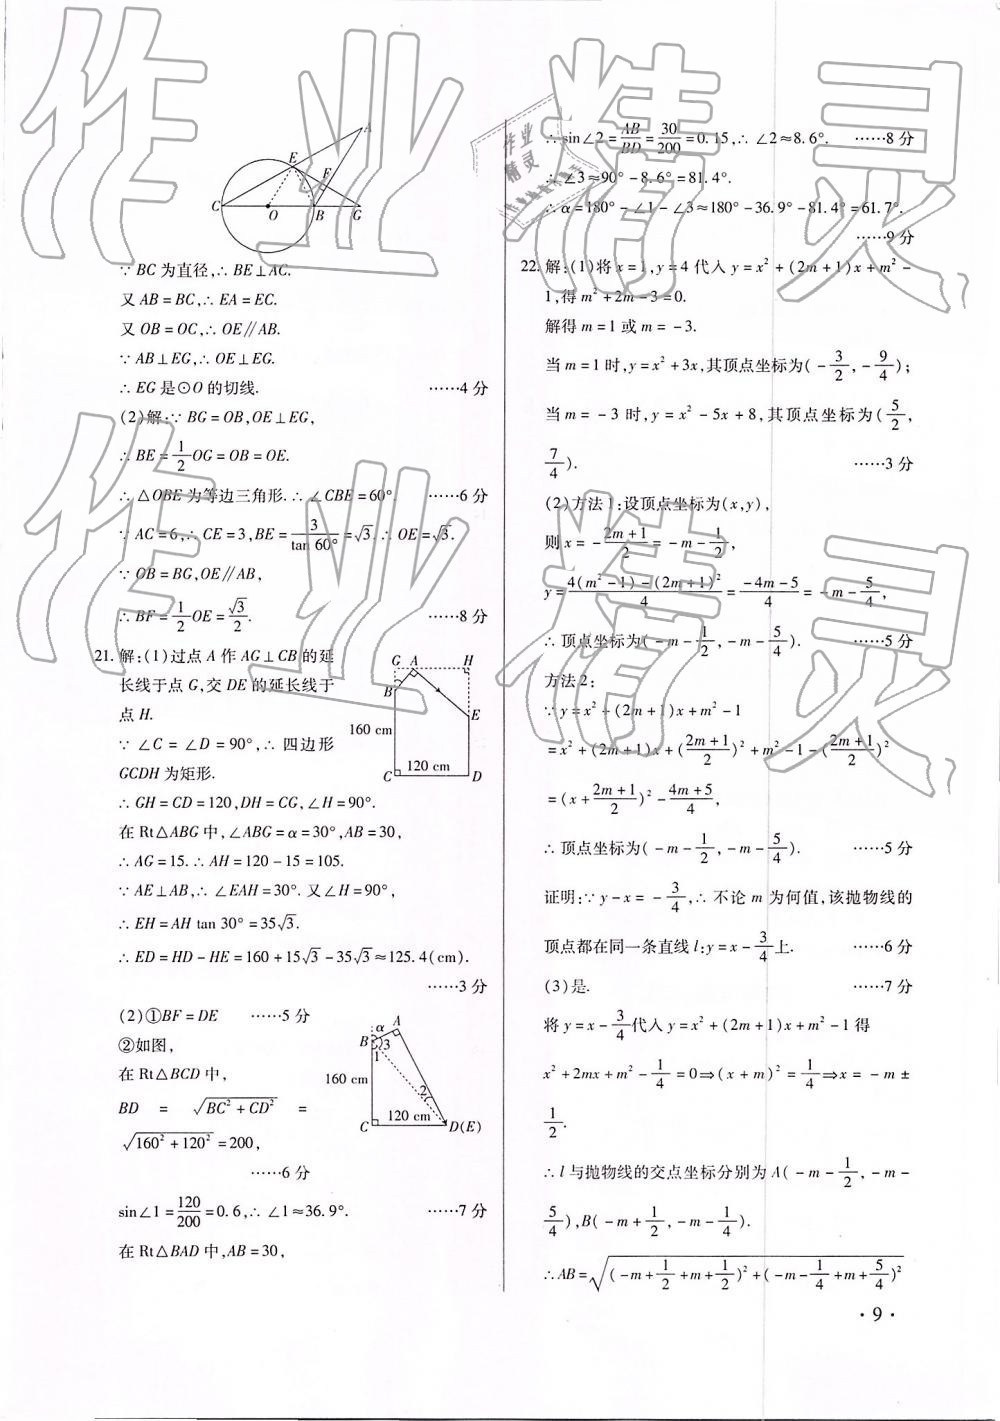 A
E
F
C
O
B
G
∵ BC 为直径,∴ BE⊥AC.
又 AB = BC,∴ EA = EC.
又 OB = OC,∴ OE∥AB.
∵ AB⊥EG,∴ OE⊥EG.
∴ EG 是⊙O 的切线. ……4 分
(2)解:∵ BG = OB,OE⊥EG,
∴ BE = 1/2 OG = OB = OE.
∴ △OBE 为等边三角形.∴ ∠CBE = 60°. ……6 分
∵ AC = 6,∴ CE = 3,BE = 3/tan 60° = √3.∴ OE = √3.
∵ OB = BG,OE∥AB,
∴ BF = 1/2 OE = √3/2. ……8 分
21. 解:(1)过点 A 作 AG⊥CB 的延
长线于点 G,交 DE 的延长线于
点 H.
∵ ∠C = ∠D = 90°,∴ 四边形
GCDH 为矩形.
G A H
B
E
160 cm
120 cm
C D
∴ GH = CD = 120,DH = CG,∠H = 90°.
在 Rt△ABG 中,∠ABG = α = 30°,AB = 30,
∴ AG = 15.∴ AH = 120 − 15 = 105.
∵ AE⊥AB,∴ ∠EAH = 30°. 又∠H = 90°,
∴ EH = AH tan 30° = 35√3.
∴ ED = HD − HE = 160 + 15√3 − 35√3 ≈ 125.4(cm).
……3 分
(2)①BF = DE ……5 分
②如图,
在 Rt△BCD 中,
BD = √(BC² + CD²) =
√(160² + 120²) = 200,
……6 分
α A
B 3
1
160 cm
2
120 cm
C D(E)
sin∠1 = 120/200 = 0.6,∴ ∠1≈36.9°. ……7 分
在 Rt△BAD 中,AB = 30,
∴ sin∠2 = AB/BD = 30/200 = 0.15,∴ ∠2≈8.6°. ……8 分
∴ ∠3≈90° − 8.6° = 81.4°.
∴ α = 180° − ∠1 − ∠3≈180° − 36.9° − 81.4° = 61.7°.
……9 分
22. 解:(1)将 x = 1,y = 4 代入 y = x² + (2m + 1)x + m² −
1,得 m² + 2m − 3 = 0.
解得 m = 1 或 m = −3.
当 m = 1 时,y = x² + 3x,其顶点坐标为( −3/2, −9/4);
当 m = −3 时,y = x² − 5x + 8,其顶点坐标为(5/2,
7/4). ……3 分
(2)方法 1:设顶点坐标为(x,y),
则 x = −(2m + 1)/2 = −m − 1/2,
y = (4(m² − 1) − (2m + 1)²)/4 = (−4m − 5)/4 = −m − 5/4,
∴ 顶点坐标为( −m − 1/2, −m − 5/4). ……5 分
方法 2:
∵ y = x² + (2m + 1)x + m² − 1
= x² + (2m + 1)x + ((2m + 1)/2)² + m² − 1 − ((2m + 1)/2)²
= (x + (2m + 1)/2)² − (4m + 5)/4,
∴ 顶点坐标为( −m − 1/2, −m − 5/4). ……5 分
证明:∵ y − x = −3/4,∴ 不论 m 为何值,该抛物线的
顶点都在同一条直线 l:y = x − 3/4 上. ……6 分
(3)是. ……7 分
将 y = x − 3/4 代入 y = x² + (2m + 1)x + m² − 1 得
x² + 2mx + m² − 1/4 = 0⇒(x + m)² = 1/4⇒x = −m ±
1/2.
∴ l 与抛物线的交点坐标分别为 A( −m − 1/2, −m −
5/4),B( −m + 1/2, −m − 1/4).
∴ AB = √(( −m + 1/2 + m + 1/2)² + ( −m − 1/4 + m + 5/4)²)
· 9 ·
作业精灵
作业精灵
作业
精灵